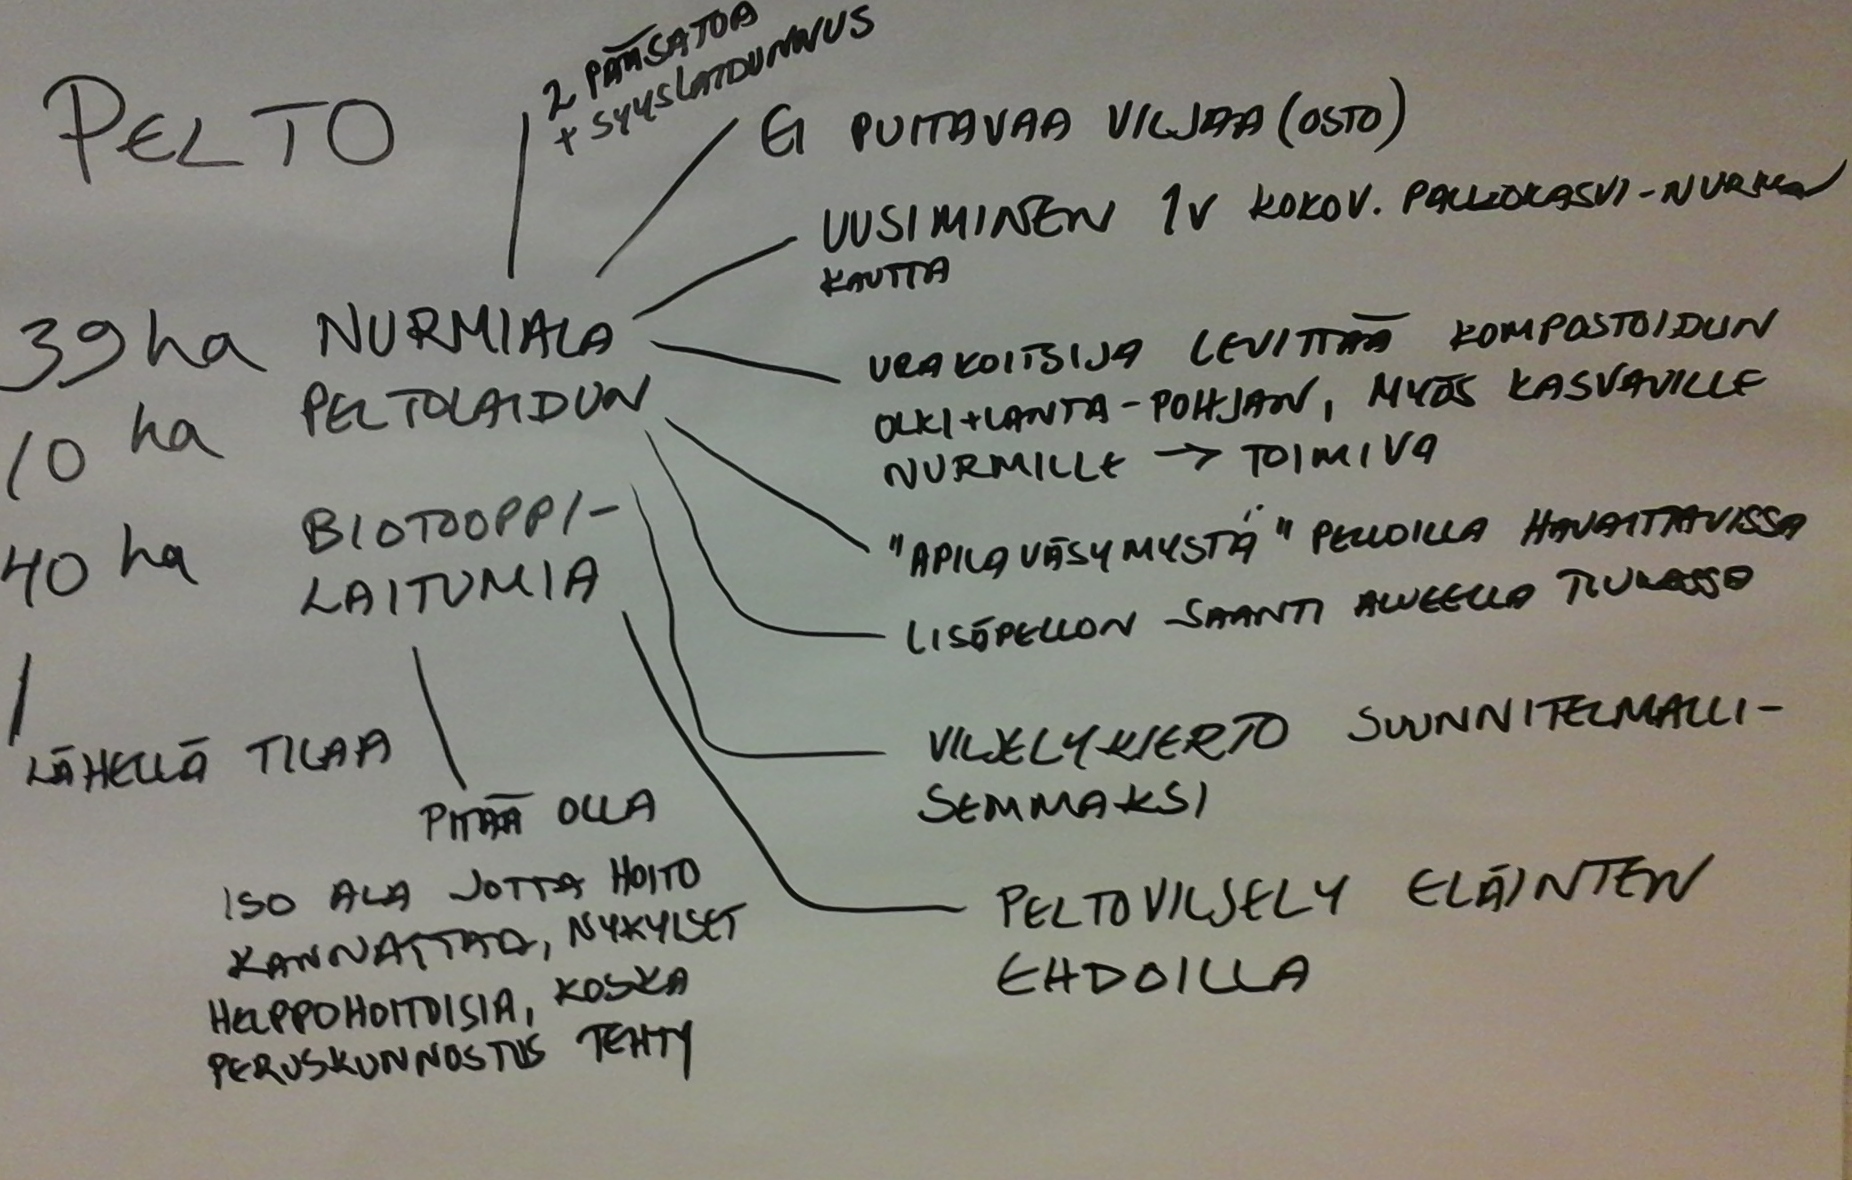 PELTO
2 PÄÄSATOA
+ SYYSLAIDUNNUS
EI PUITAVAA VILJAA (OSTO)
UUSIMINEN 1V KOKOV. PALKOKASVI-NURMEN
KAUTTA
39 ha NURMIALA
10 ha PELTOLAIDUN
40 ha BIOTOOPPI-
LAITUMIA
URAKOITSIJA LEVITTÄÄ KOMPOSTOIDUN
OLKI+LANTA-POHJAN, MYÖS KASVAVILLE
NURMILLE → TOIMIVA
"APILAVÄSYMYSTÄ" PELLOILLA HAVAITTAVISSA
LISÄPELLON SAANTI ALUEELLA TIUKASSA
LÄHELLÄ TILAA
VILJELYKIERTO SUUNNITELMALLI-
SEMMAKSI
PITÄÄ OLLA
ISO ALA JOTTA HOITO
KANNATTAA, NYKYISET
HELPPOHOITOISIA, KOSKA
PERUSKUNNOSTUS TEHTY
PELTOVILJELY ELÄINTEN
EHDOILLA